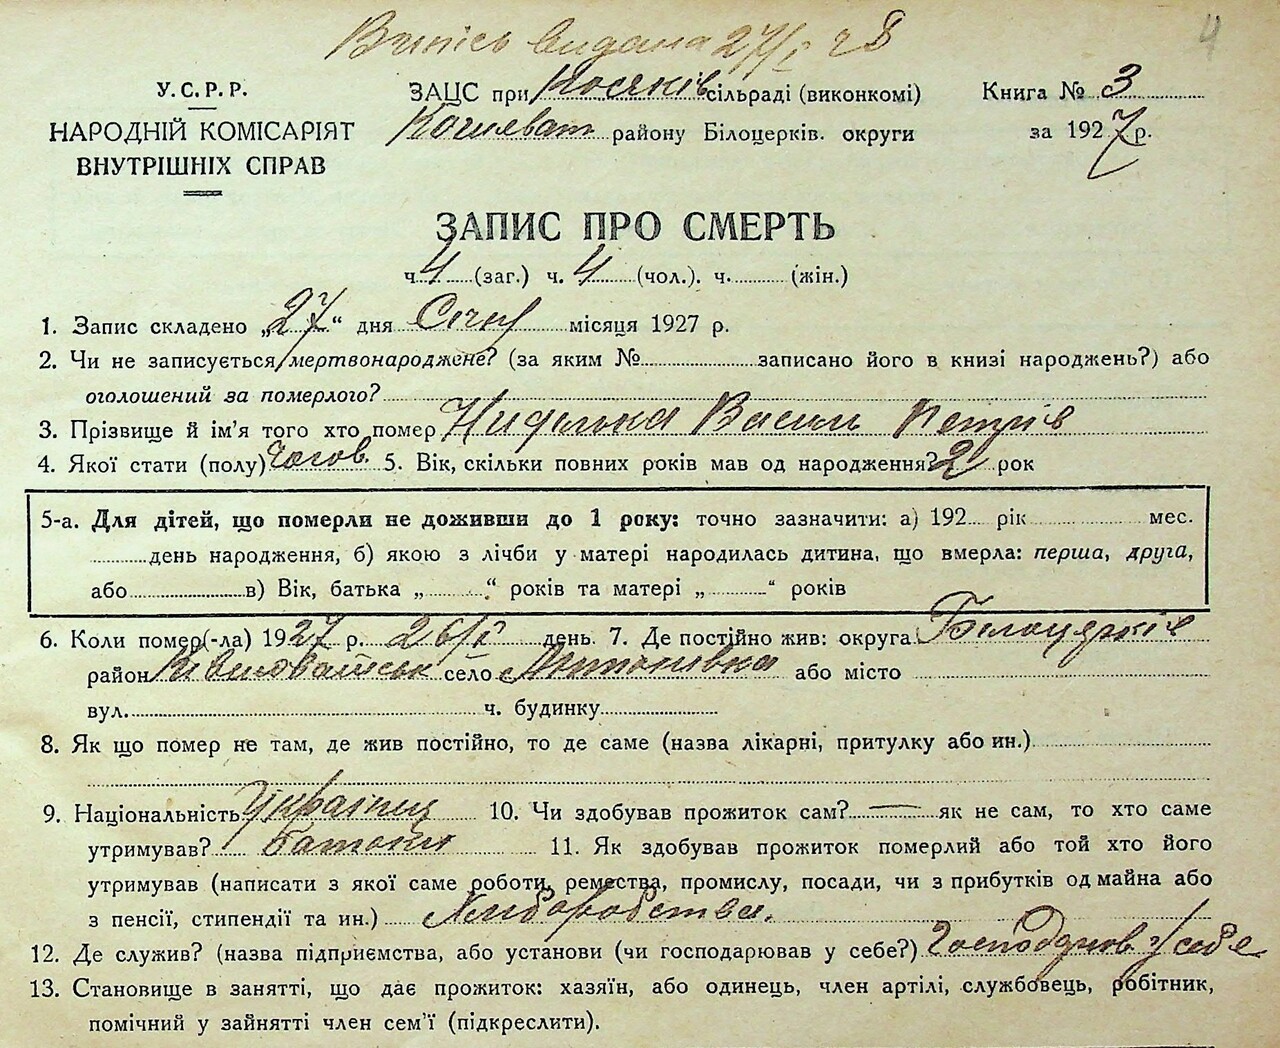 Випись видана 27/I 28
4
У.С.Р.Р. ЗАЦС при Косяків сільраді (виконкомі) Книга № 3
НАРОДНІЙ КОМІСАРІЯТ району Білоцерків. округи за 1927 р.
ВНУТРІШНІХ СПРАВ
ЗАПИС ПРО СМЕРТЬ
ч. 4 (заг.) ч. 4 (чол.). ч. (жін.)
1. Запис складено „27“ дня Січня місяця 1927 р.
2. Чи не записується мертвонароджене? (за яким № записано його в книзі народжень?) або
оголошений за померлого?
3. Прізвище й ім'я того хто помер Василь Петрів
4. Якої стати (полу) чогов. 5. Вік, скільки повних років мав од народження? 2 рок
5-а. Для дітей, що померли не доживши до 1 року: точно зазначити: а) 192 рік мес.
день народження, б) якою з лічби у матері народилась дитина, що вмерла: перша, друга,
або в) Вік, батька „ “ років та матері „ “ років
6. Коли помер(-ла) 1927 р. 26/I день. 7. Де постійно жив: округа Білоцерків
район село Антонівка або місто
вул. ч. будинку
8. Як що помер не там, де жив постійно, то де саме (назва лікарні, притулку або ин.)
9. Національність Українц 10. Чи здобував прожиток сам? — як не сам, то хто саме
утримував? батьки 11. Як здобував прожиток померлий або той хто його
утримував (написати з якої саме роботи, ремества, промислу, посади, чи з прибутків од майна або
з пенсії, стипендії та ин.) Хліборобства.
12. Де служив? (назва підприємства, або установи (чи господарював у себе?) Господарюв. у себе
13. Становище в занятті, що дає прожиток: хазяїн, або одинець, член артілі, службовець, робітник,
помічний у зайнятті член сем'ї (підкреслити).